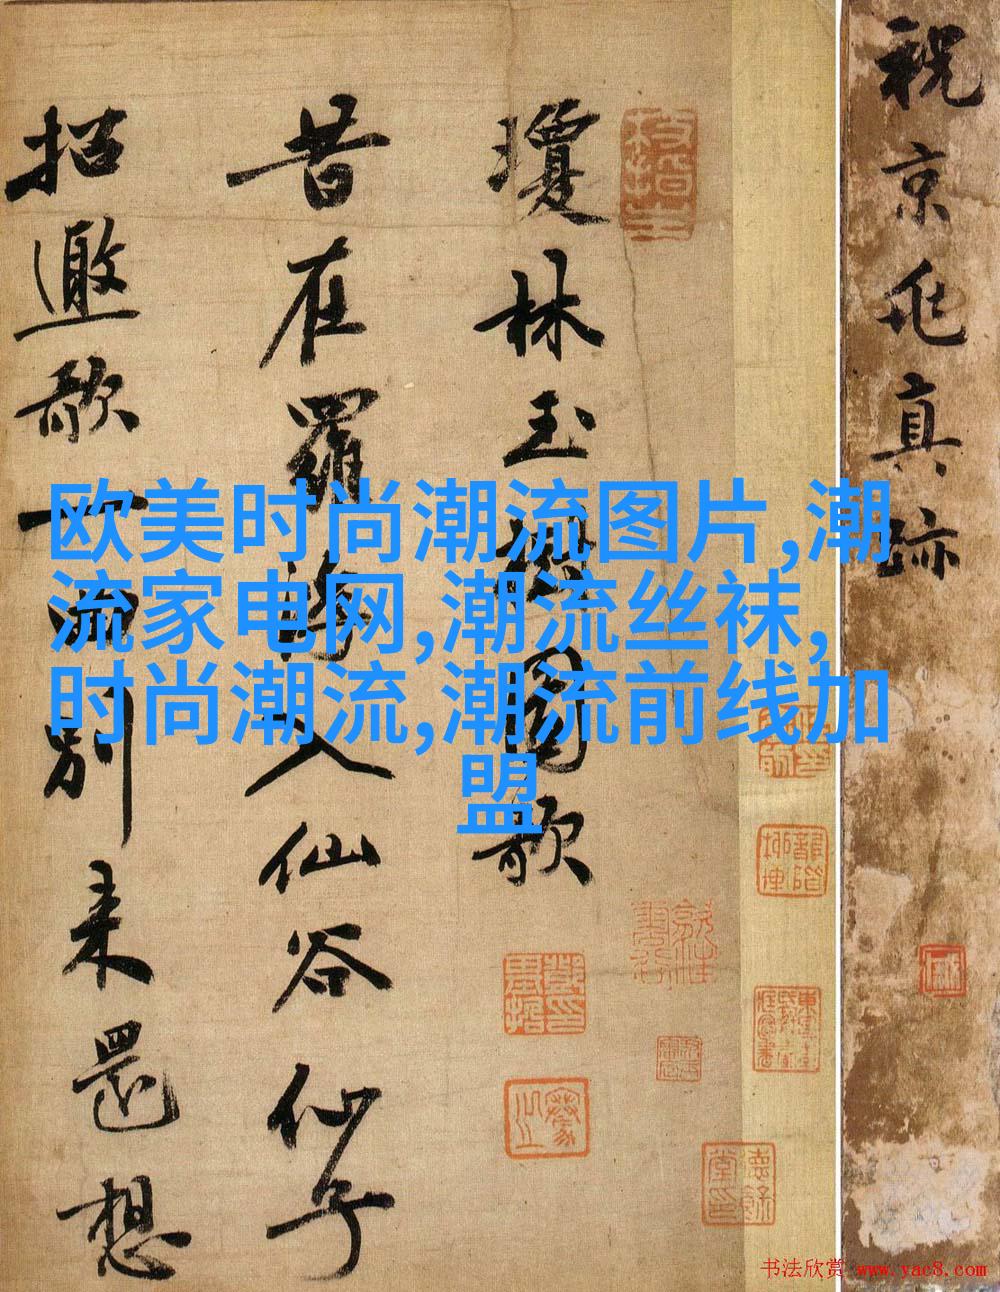 祝京兆真跡
瓊林玉樹圖歌
昔在羅浮入仙谷仙子
招邀歌一曲別来還想
欧美时尚潮流图片,潮
流家电网,潮流丝袜,
时尚潮流,潮流前线加
盟
书法欣赏 www.yac8.com